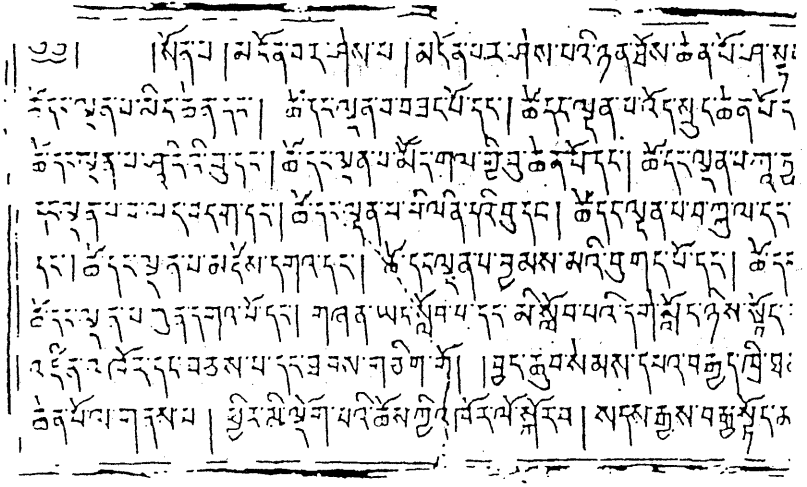 སོན་པ། མངོན་པར་ཤེས་པ། མངོན་པར་ཤེས་པའི་ཉན་ཐོས་ཆེན་པོ་ཤ་
ཚེ་དང་ལྡན་པ་ དང་། ཚེ་དང་ལྡན་པ་བཟང་པོ་དང་། ཚེ་དང་ལྡན་པ་འོད་སྲུང་ཆེན་པོ་ད
ཚེ་དང་ལྡན་པ་ཤཱ་རིའི་བུ་དང་། ཚེ་དང་ལྡན་པ་མོའུ་དགལ་གྱི་བུ་ཆེན་པོ་དང་། ཚེ་དང་ལྡན་པ་
དང་ལྡན་པ་ དང་། ཚེ་དང་ལྡན་པ་ བུ་དང་། ཚེ་དང་ལྡན་པ་བ་ཀུ་ལ་དང་
དང་། ཚེ་དང་ལྡན་པ་མཛེས་དགའ་དང་། ཚེ་དང་ལྡན་པ་བྱམས་མའི་བུ་གང་པོ་དང་། ཚེ་དང
ཚེ་དང་ལྡན་པ་ཀུན་དགའ་བོ་དང་། གཞན་ཡང་སློབ་པ་དང་མི་སློབ་པའི་དགེ་སློང་ཉིས་སྟོང་
འཛིན་འཁོར་དང་བཅས་པ་དང་ཐབས་གཅིག་གོ། །བྱང་ཆུབ་སེམས་དཔའ་བརྒྱད་ཁྲི་ཐ
ཆེན་པོ་ལ་གནས་པ། ཕྱིར་མི་ལྡོག་པའི་ཆོས་ཀྱི་འཁོར་ལོ་སྐོར་བ། སངས་རྒྱས་བརྒྱ་སྟོང་མ